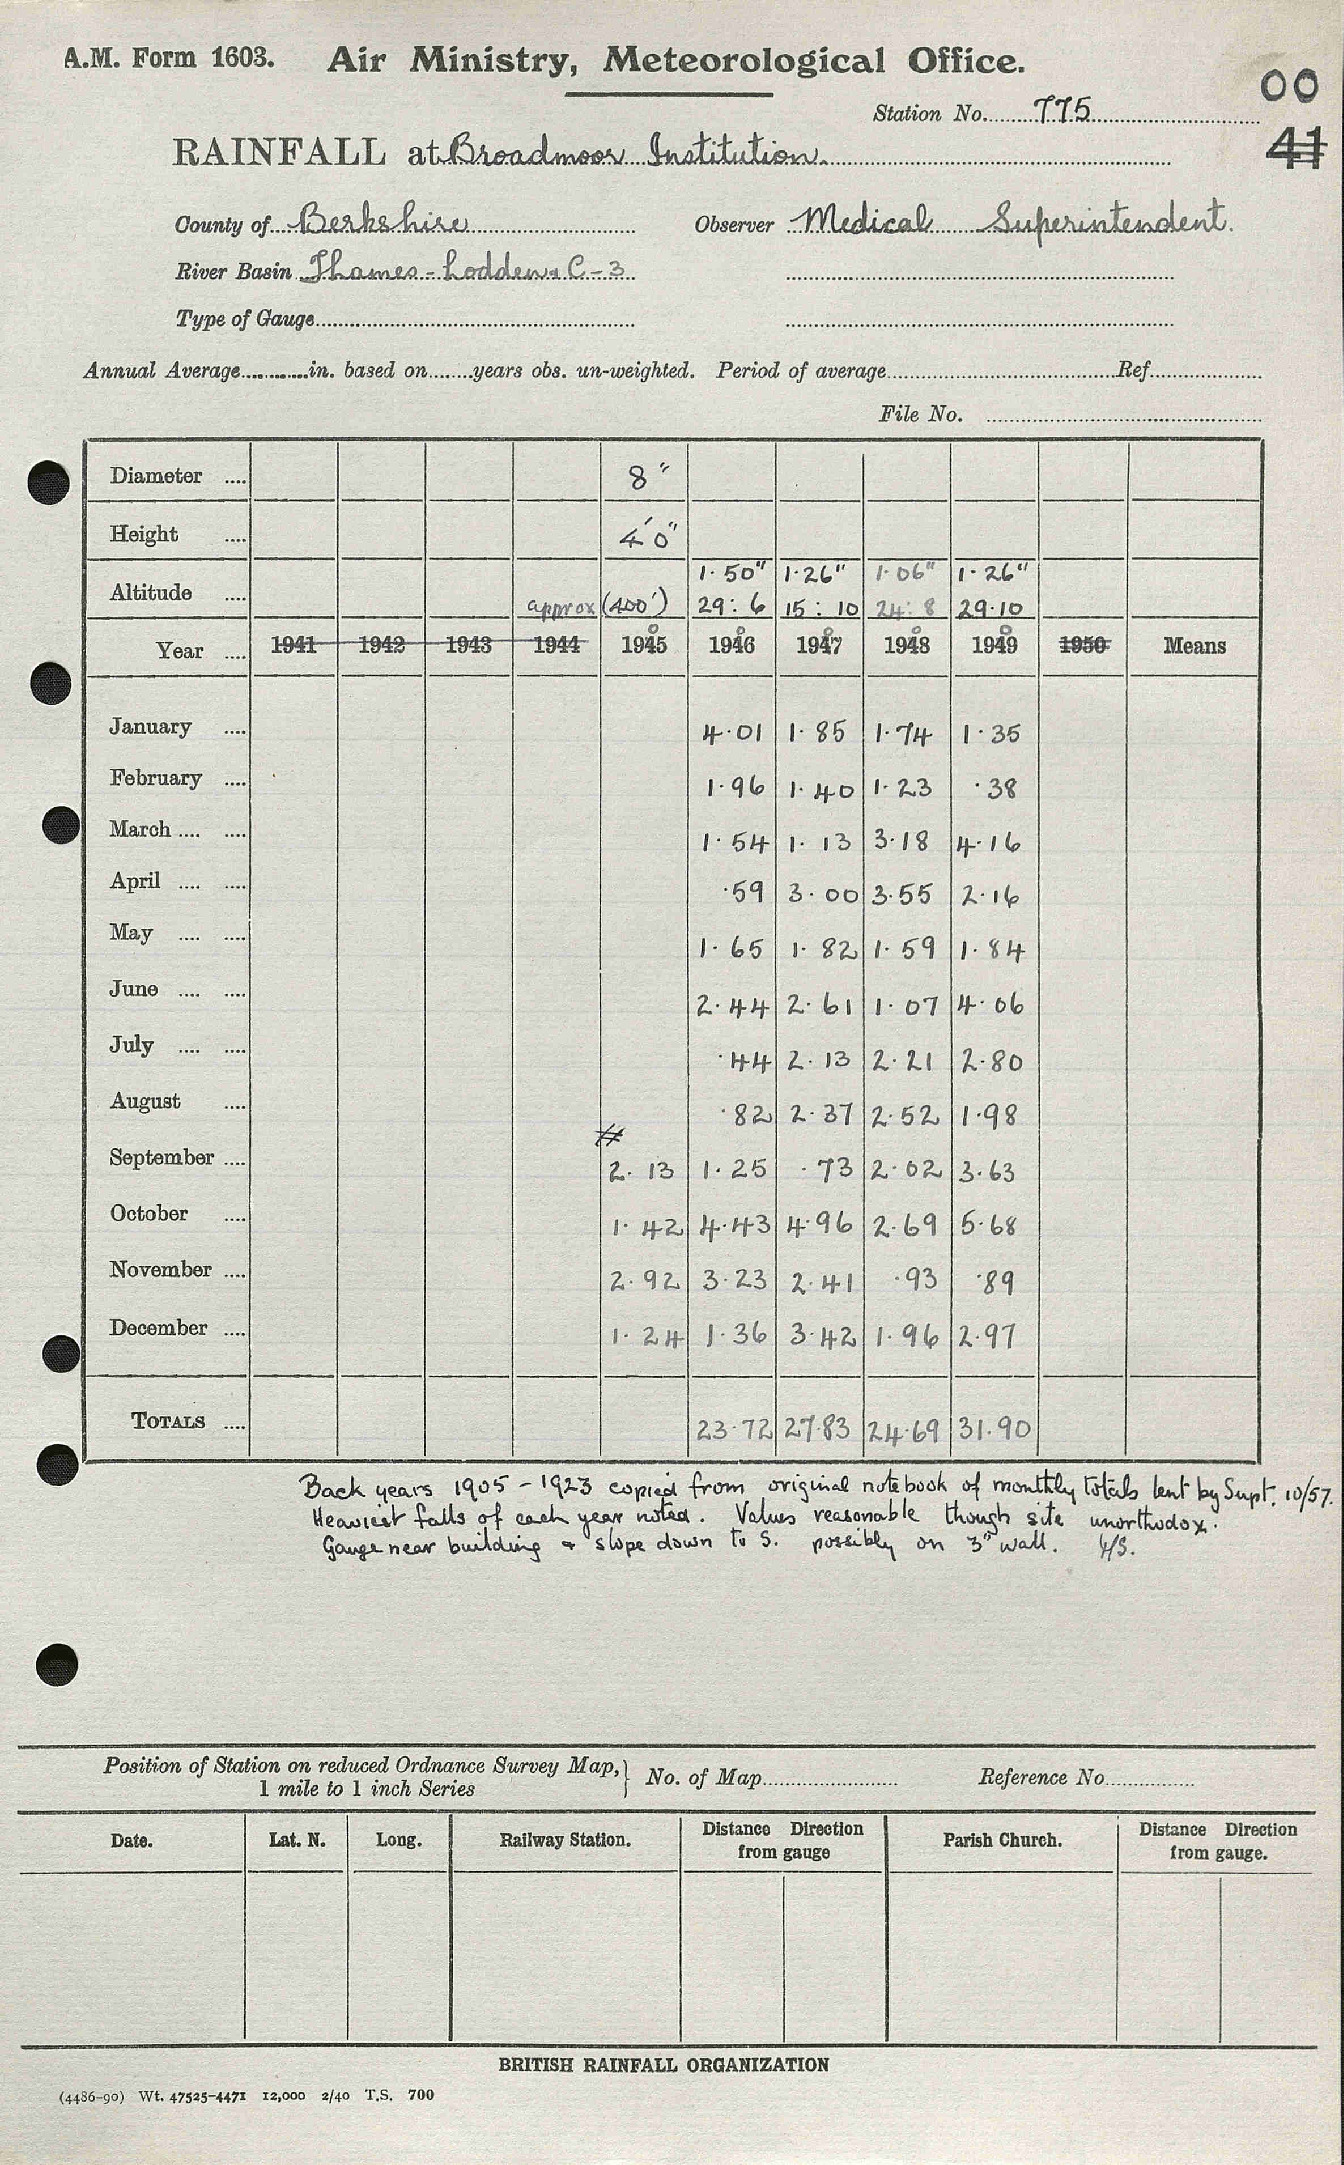 A.M. Form 1603. Air Ministry, Meteorological Office.
00
Station No. 775
41
RAINFALL at Broadmoor Institution.
County of Berkshire Observer Medical Superintendent.
River Basin Thames - Loddon C-3
Type of Gauge
Annual Average in. based on years obs. un-weighted. Period of average Ref.
File No.
Diameter 8"
Height 4'0"
1.50" 1.26" 1.06" 1.26"
Altitude approx (400') 29:6 15:10 24:8 29.10
0 0 0 0 0
Year 1941 1942 1943 1944 1945 1946 1947 1948 1949 1950 Means
January 4.01 1.85 1.74 1.35
February 1.96 1.40 1.23 .38
March 1.54 1.13 3.18 4.16
April .59 3.00 3.55 2.16
May 1.65 1.82 1.59 1.84
June 2.44 2.61 1.07 4.06
July .44 2.13 2.21 2.80
August .82 2.37 2.52 1.98
September 2.13 1.25 .73 2.02 3.63
October 1.42 4.43 4.96 2.69 5.68
November 2.92 3.23 2.41 .93 .89
December 1.24 1.36 3.42 1.96 2.97
TOTALS 23.72 27.83 24.69 31.90
Back years 1905 - 1923 copied from original notebook of monthly totals lent by Supt. 10/57.
Heaviest falls of each year noted. Values reasonable though site unorthodox.
Gauge near building & slope down to S. possibly on 3" wall.
Position of Station on reduced Ordnance Survey Map, No. of Map Reference No.
1 mile to 1 inch Series
Date. Lat. N. Long. Railway Station. Distance Direction from gauge Parish Church. Distance Direction from gauge.
BRITISH RAINFALL ORGANIZATION
(4486-90) Wt. 47525-4471 12,000 2/40 T.S. 700